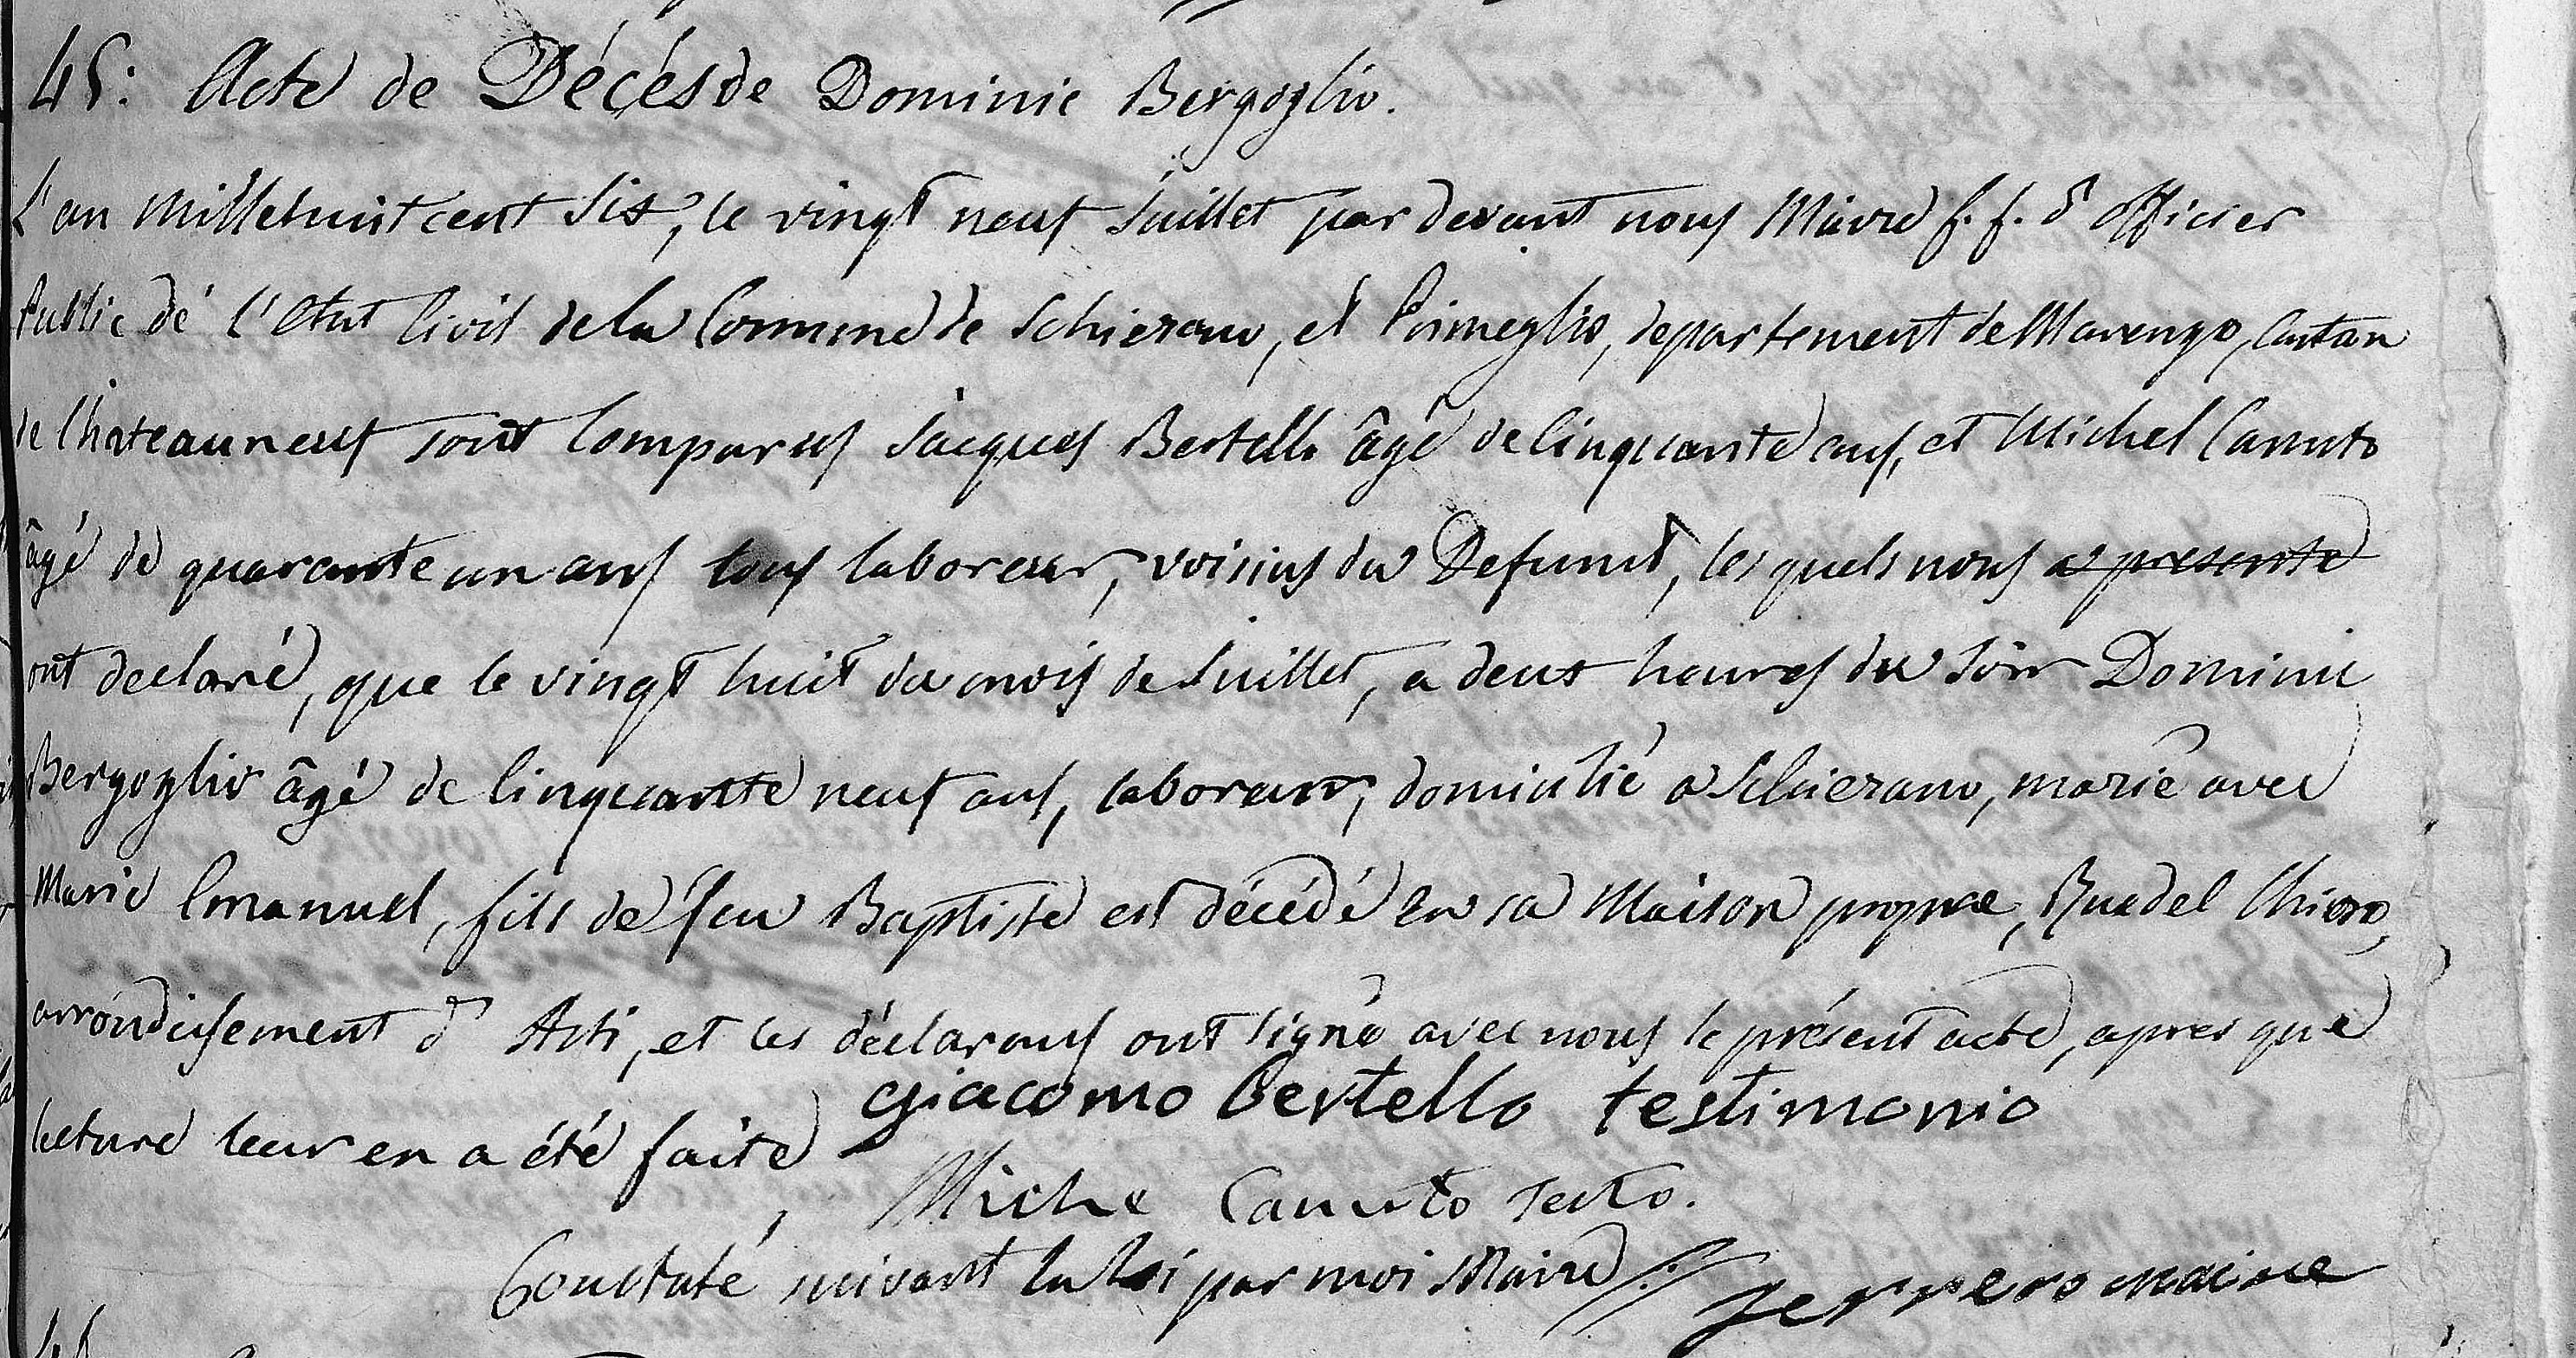 45: Acte de Décés de Dominic Bergoglio.
L'an millehuitcent six, le vingt neuf Juillet par devant nous Maire f. f. d'officier
Public dé l'Etat Civil de la Commune de Schierano, et Primeglio, departement de Marengo, Canton
de Chateauneuf sont Comparus Jacques Bertello âgé de Cinquante ans, et Michel Canuto
âgé de quarante un ans tous laboreur, voisins du Defunct, les quels nous a presenté
ont declaré, que le vingt huit du mois de Juillet, a deux heures du soir Dominic
Bergoglio âgé de Cinquante neuf ans, laboreur, domicilié a Schierano, marié avec
Marie Emanuel, fils de feu Baptiste est décédé en sa Maison propre, Rue del Chioso,
arrondissement d'Asti, et les déclarans ont signé avec nous le présent acte, apres que
lecture leur en a été faite
giacomo Bertello testimonio
Miche Canuto testo.
Constaté suivant la Loi par moi Maire //. ferrero maire